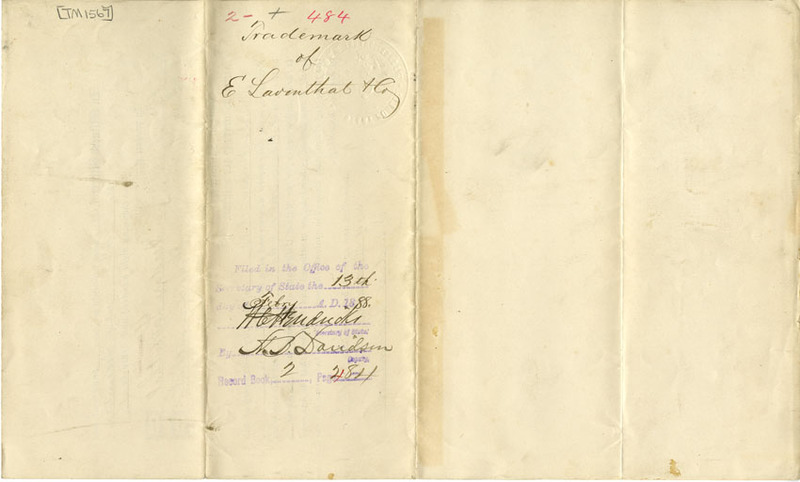 [TM1567]
2- + 484
Trademark
of
E Laventhal & Co
Filed in the Office of the
Secretary of State the 13th
day of Feby A. D. 1888.
W C Hendricks
Secretary of State
By A. B. Davidson
Deputy
Record Book, 2, Page 484